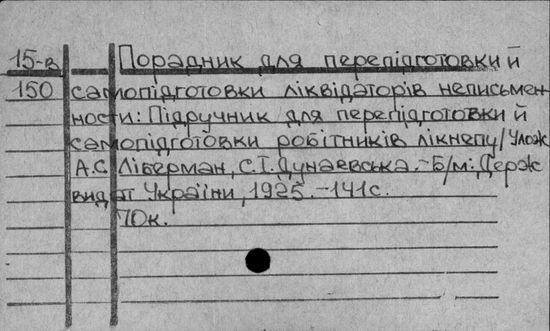 15-в Порадник для перепідготовки й
150 самопідготовки ліквідаторів неписьмен-
ности: Підручник для перепідготовки й
самопідготовки робітників лікнепу/Улож.
А.С. Ліберман, С.І. Дунаєвська.-Б/м: Держ
вид ат України, 1925.-141с.
70к.